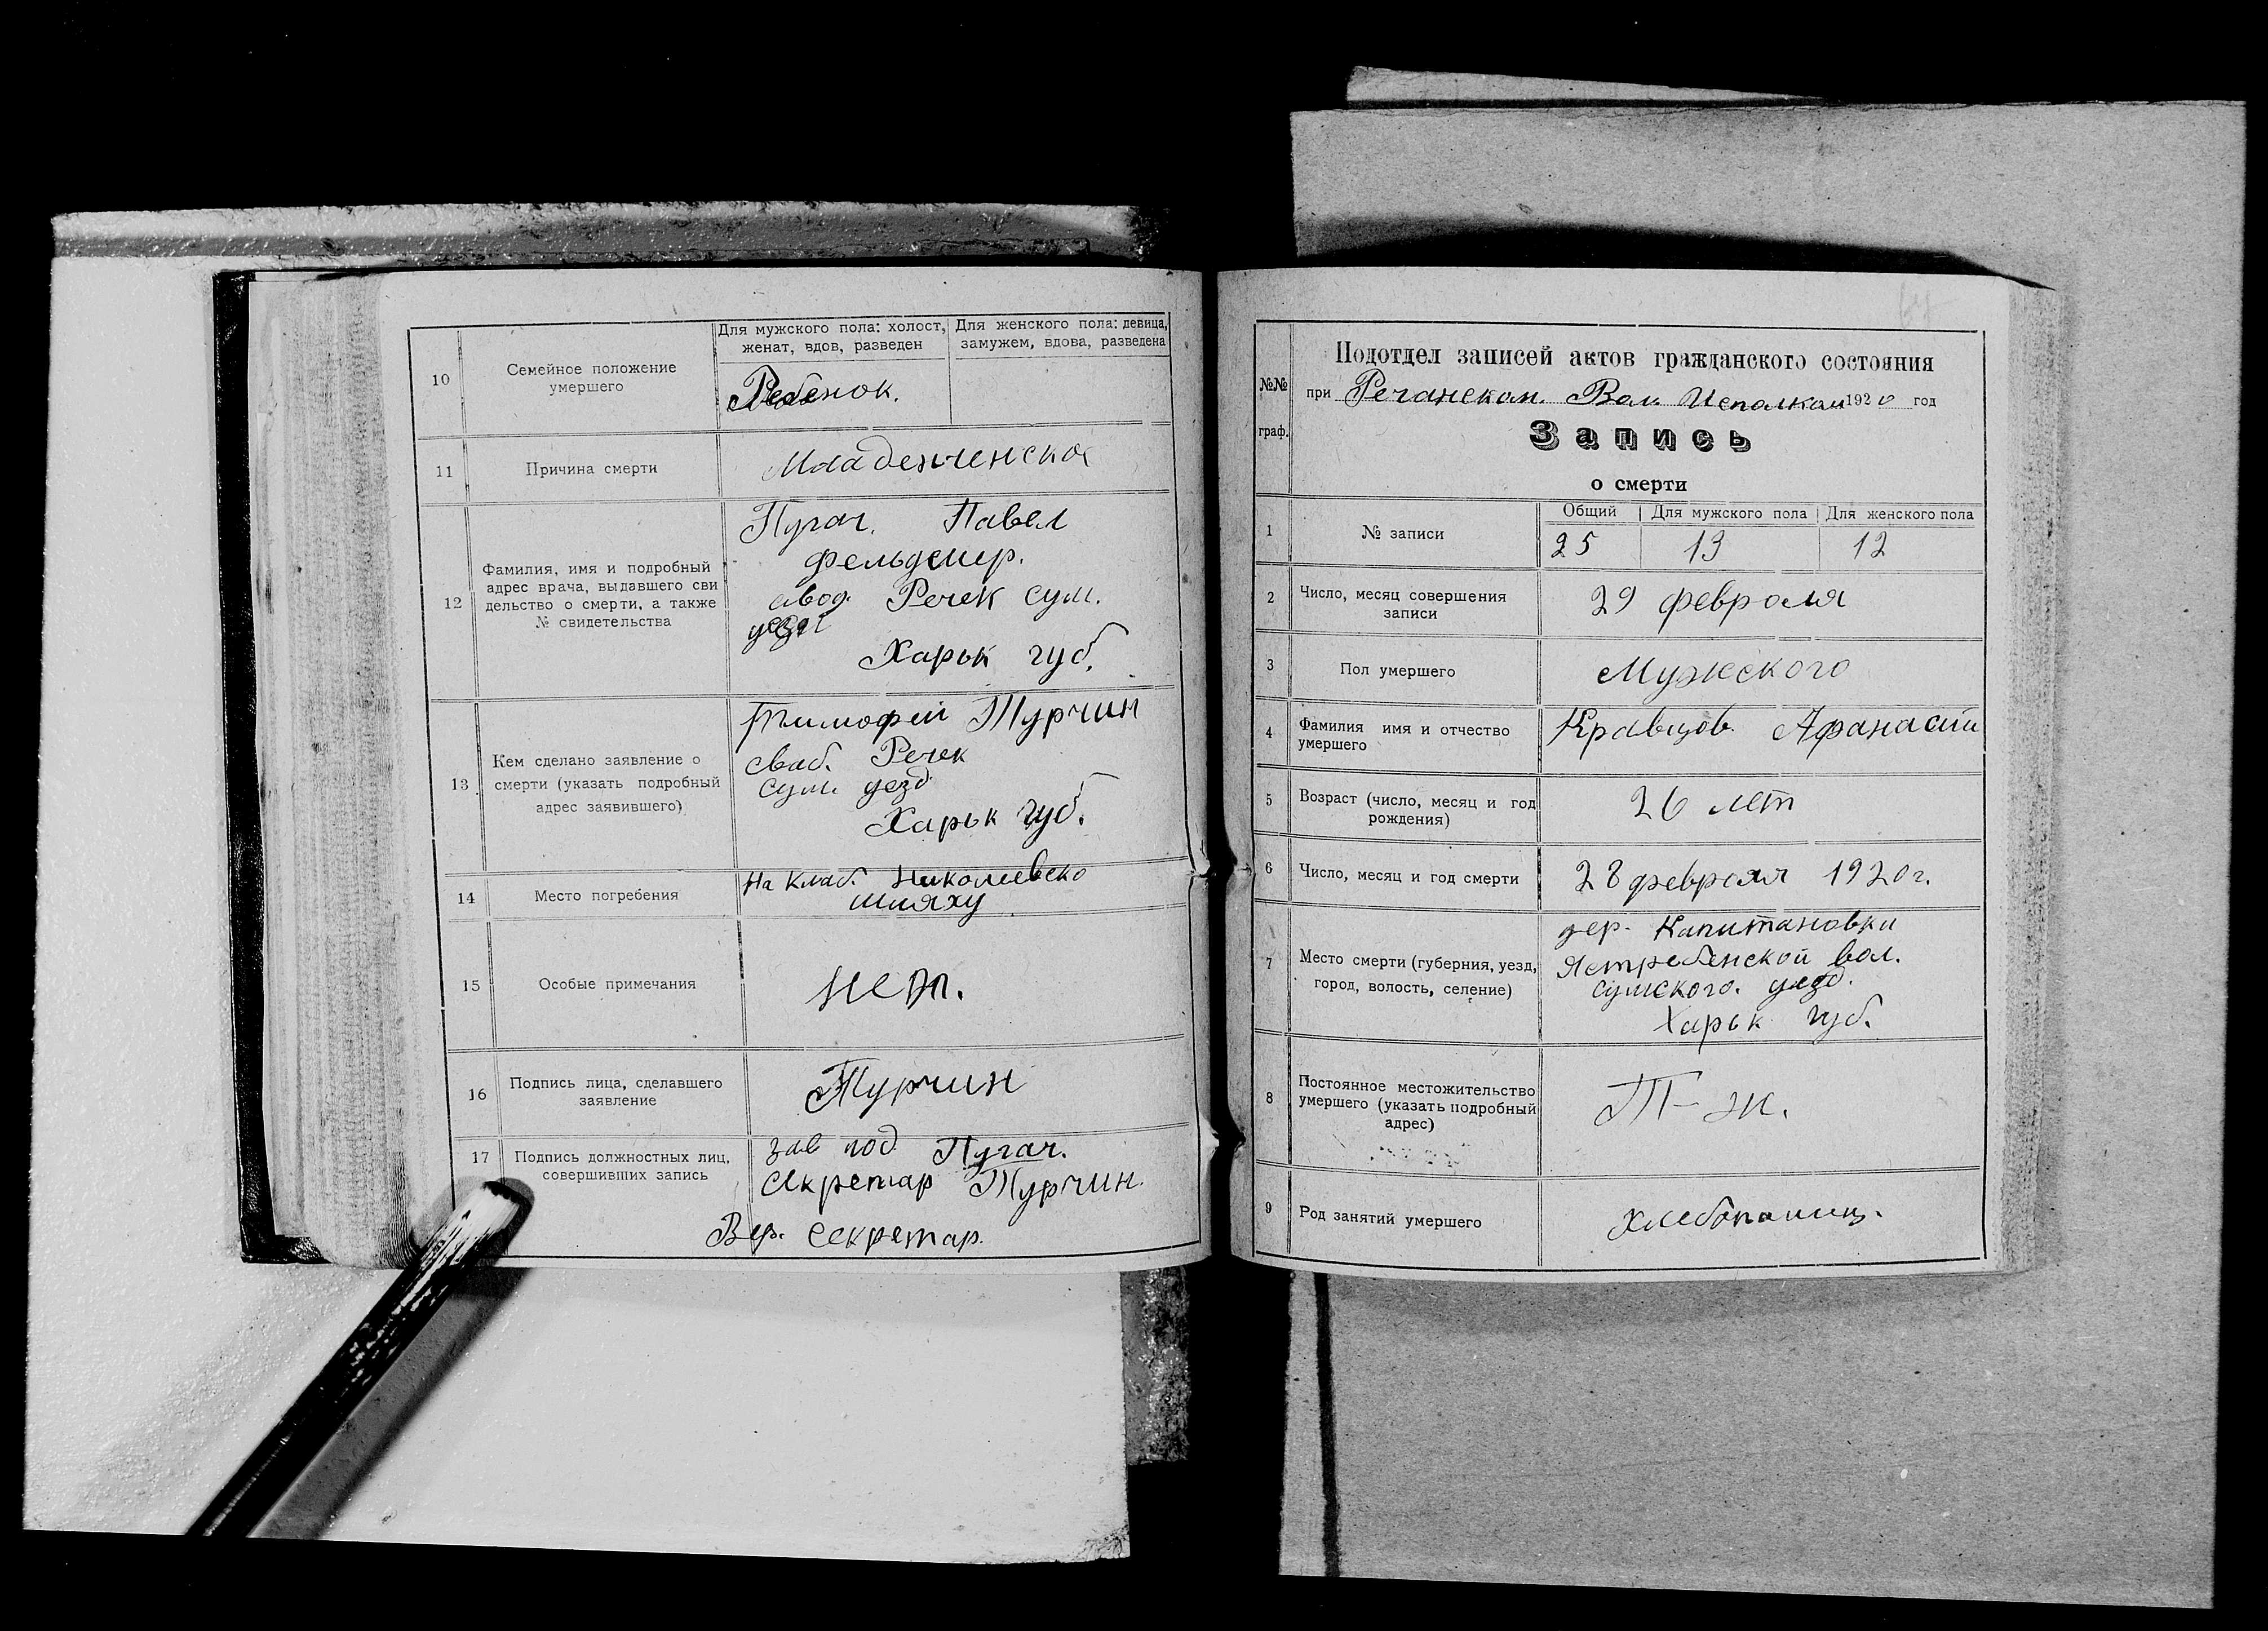 10
Семейное положение
умершего
Для мужского пола: холост,
женат, вдов, разведен
Для женского пола: девица,
замужем, вдова, разведена
Ребенок.
11
Причина смерти
Младенческое
12
Фамилия, имя и подробный
адрес врача, выдавшего сви
дельство о смерти, а также
№ свидетельства
Пугач. Павел
фельдшер.
Речек сум.
уезд
Харьк губ.
13
Кем сделано заявление о
смерти (указать подробный
адрес заявившего)
Тимофей Турчин
Речек
Сум. уезд
Харьк губ.
14
Место погребения
На Клад. Николаевско
шляху
15
Особые примечания
Нет.
16
Подпись лица, сделавшего
заявление
Турчин
17
Подпись должностных лиц,
совершивших запись
Зав под Пугач.
Секретар Турчин.
Вер. Секретар.
№№
граф.
Подотдел записей актов гражданского состояния
при Речанском. Вол. Исполком 1920 год
Запись
о смерти
1
№ записи
Общий
Для мужского пола
Для женского пола
25
13
12
2
Число, месяц совершения
записи
29 февраля
3
Пол умершего
Мужского
4
Фамилия имя и отчество
умершего
Кравцов Афанасий
5
Возраст (число, месяц и год
рождения)
26 лет
6
Число, месяц и год смерти
28 февраля 1920 г.
7
Место смерти (губерния, уезд,
город, волость, селение)
дер. Капитановки
Ястребенской вол.
Сумского. уезд.
Харьк губ.
8
Постоянное местожительство
умершего (указать подробный
адрес)
Т-ж.
9
Род занятий умершего
Хлебопашец.